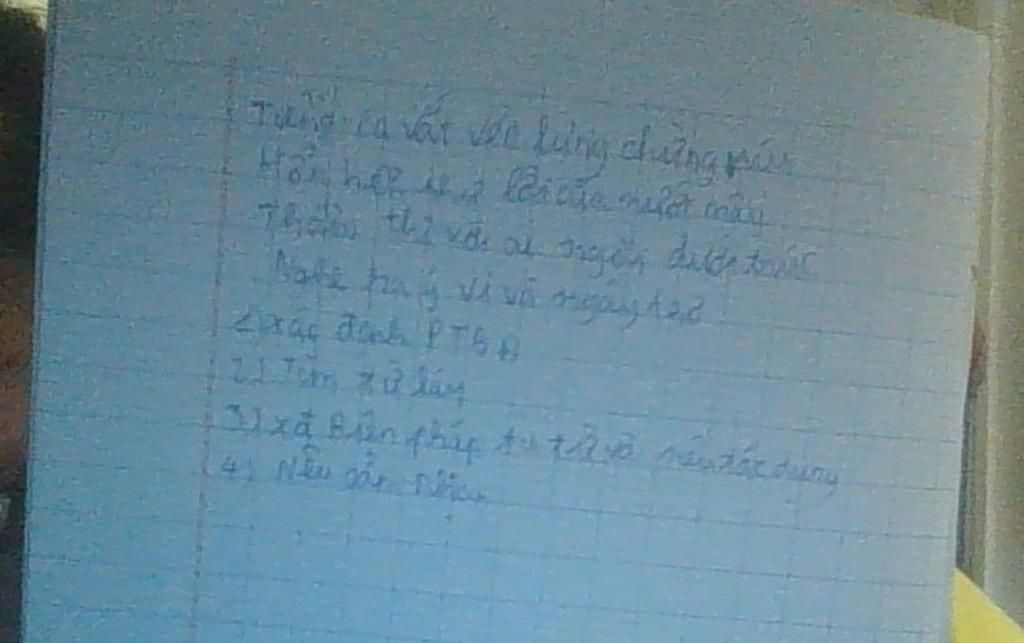 Tiếng ca vắt vẻo lưng chừng núi
Hổn hển như lời của nước mây
Thầm thĩ với ai ngồi dưới trúc
Nghe ra ý vị và ngây thơ
1. xác định PTBĐ
2) Tìm từ láy
3) xđ Biện pháp tu từ và nêu tác dụng
4) Nêu cảm nhận